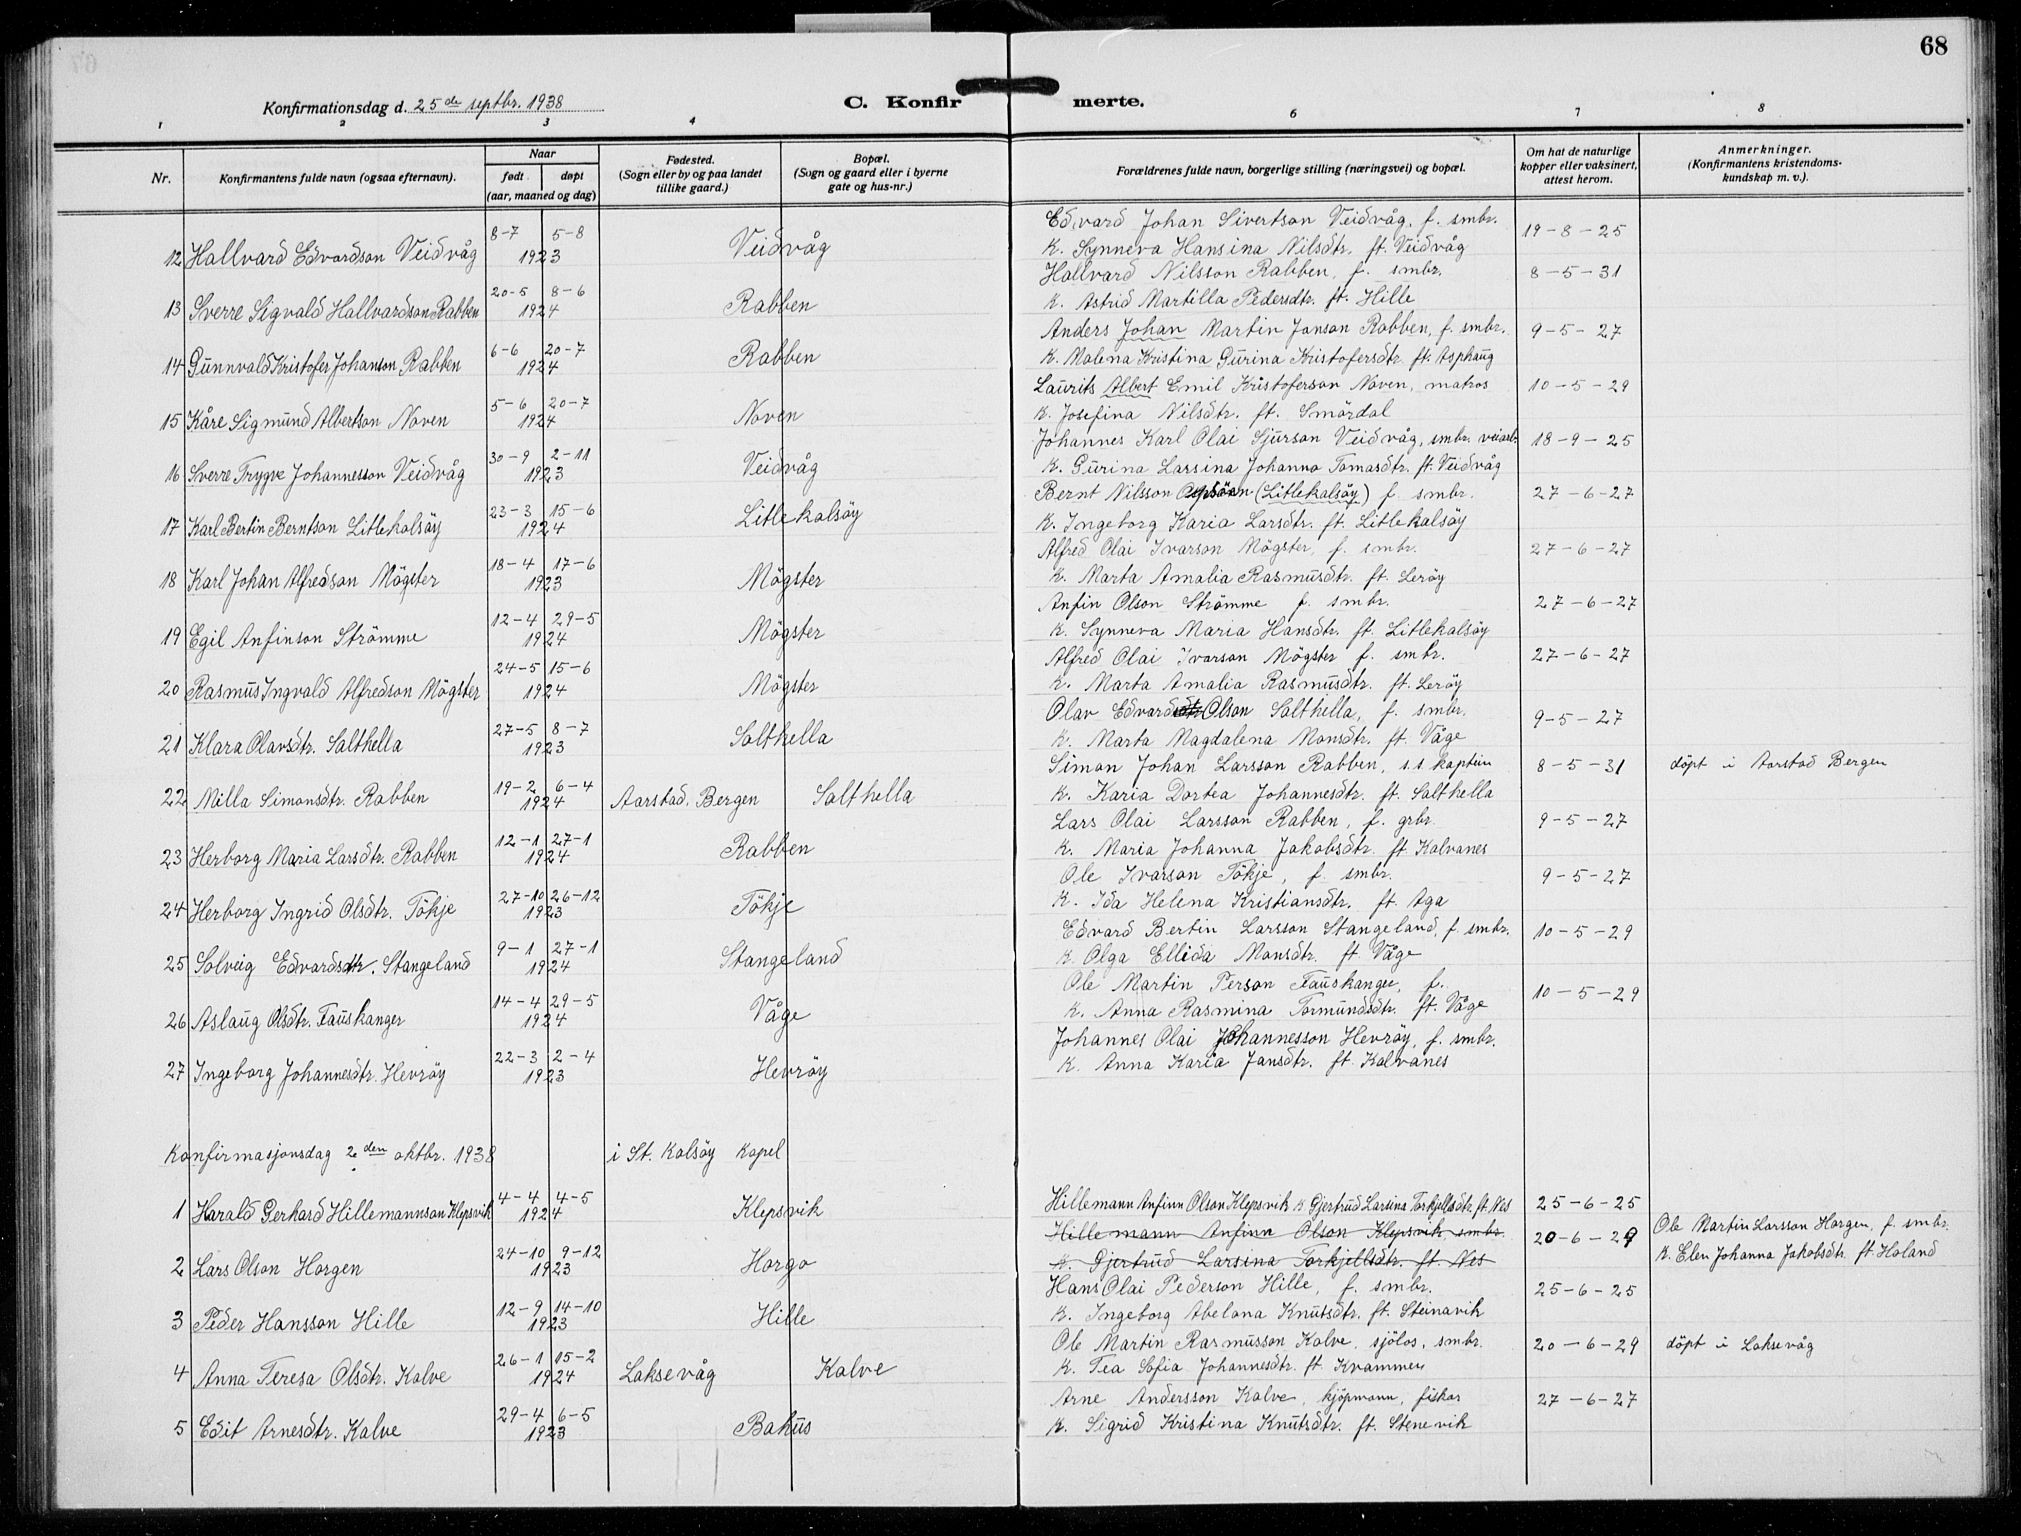 68
Konfirmationsdag d. 25de septbr. 1938
C. Konfirmerte.
1 2 3 4 6 7 8
Nr.
Konfirmantens fulde navn (ogsaa efternavn).
Naar
født døpt
(aar, maaned og dag)
Fødested.
(Sogn eller by og paa landet
tillike gaard.)
Bopæl.
(Sogn og gaard eller i byerne
gate og hus-nr.)
Forældrenes fulde navn, borgerlige stilling (næringsvei) og bopæl.
Om hat de naturlige
kopper eller vaksinert,
attest herom.
Anmerkninger.
(Konfirmantens kristendoms-
kundskap m. v.).
12 Hallvard Edvardson Veidvåg 8-7 5-8 1923 Veidvåg
Edvard Johan Sivertson Veidvåg, f. smbr. 19-8-25
K. Synneva Hansina Nilsdtr. ft. Veidvåg
13 Sverre Sigvald Hallvardson Rabben 20-5 8-6 1924 Rabben
Hallvard Nilsson Rabben, f. smbr. 8-5-31
K. Astrid Martilla Pedersdtr. ft. Hille
14 Gunnvald Kristofer Johanson Rabben 6-6 20-7 1924 Rabben
Anders Johan Martin Janson Rabben, f. smbr. 9-5-27
K. Malena Kristina Gurina Kristofersdtr. ft. Asphaug
15 Kåre Sigmund Albertson Noven 5-6 20-7 1924 Noven
Laurits Albert Emil Kristoferson Noven, matros 10-5-29
K. Josefina Nilsdtr. ft. Smördal
16 Sverre Trygve Johannesson Veidvåg 30-9 2-11 1923 Veidvåg
Johannes Karl Olai Sjurson Veidvåg, smbr. veiarb. 18-9-25
K. Gurina Larsina Johanna Tomasdtr. ft. Veidvåg
17 Karl Bertin Berntson Litlekalsöy 23-3 15-6 1924 Litlekalsöy
Bernt Nilsson (Litlekalsöy) f. smbr. 27-6-27
K. Ingeborg Karia Larsdtr. ft. Litlekalsöy
18 Karl Johan Alfredson Mögster 18-4 17-6 1923 Mögster
Alfred Olai Ivarson Mögster, f. smbr. 27-6-27
K. Marta Amalia Rasmusdtr. ft. Leröy
19 Egil Anfinson Strömme 12-4 29-5 1924 Mögster
Anfin Olson Strömme f. smbr. 27-6-27
K. Synneva Maria Hansdtr. ft. Litlekalsöy
20 Rasmus Ingvald Alfredson Mögster 24-5 15-6 1924 Mögster
Alfred Olai Ivarson Mögster f. smbr. 27-6-27
K. Marta Amalia Rasmusdtr. ft. Leröy
21 Klara Olavsdtr. Salthella 27-5 8-7 1923 Salthella
Olav Edvard Olson Salthella, f. smbr. 9-5-27
K. Marta Magdalena Monsdtr. ft. Våge
22 Milla Simonsdtr. Rabben 19-2 6-4 1924 Aarstad, Bergen Salthella
Simon Johan Larsson Rabben, s.s kaptein 8-5-31 döpt i Aarstad Bergen
K. Karia Dortea Johannesdtr. ft. Salthella
23 Herborg Maria Larsdtr. Rabben 12-1 27-1 1924 Rabben
Lars Olai Larsson Rabben, f. grbr. 9-5-27
K. Maria Johanna Jakobsdtr. ft. Kalvanes
24 Herborg Ingrid Olsdtr. Tökje 27-10 26-12 1923 Tökje
Ole Ivarson Tökje, f. smbr. 9-5-27
K. Ida Helena Kristiansdtr. ft. Aga
25 Solveig Edvardsdtr. Stangeland 9-1 27-1 1924 Stangeland
Edvard Bertin Larsson Stangeland, f. smbr. 10-5-29
K. Olga Ellida Monsdtr. ft. Våge
26 Aslaug Olsdtr. Fauskanger 14-4 29-5 1924 Våge
Ole Martin Person Fauskanger, f. 10-5-29
K. Anna Rasmina Tormundsdtr. ft. Våge
27 Ingeborg Johannesdtr. Hevröy 22-3 2-4 1923 Hevröy
Johannes Olai Johannesson Hevröy, f. smbr.
K. Anna Karia Jansdtr. ft. Kalvanes
Konfirmasjonsdag 2den oktbr. 1938 i St. Kalsöy kapel
1 Harald Gerhard Hillemannson Klepsvik 4-4 4-5 1924 Klepsvik
Hillemann Anfinn Olson Klepsvik K. Gjertrud Larsina Torkjellsdtr. ft. Nes 25-6-25
2 Lars Olson Horgen 24-10 9-12 1923 Horgo
Hillemann Anfinn Olson Klepsvik smbr. 20-6-29 Ole Martin Larsson Horgen, f. smbr.
K. Gjertrud Larsina Torkjellsdtr. ft. Nes K. Elen Johanna Jakobsdtr. ft. Holand
3 Peder Hansson Hille 12-9 14-10 1923 Hille
Hans Olai Pederson Hille, f. smbr. 25-6-25
K. Ingeborg Abelana Knutsdtr. ft. Steinavik
4 Anna Teresa Olsdtr. Kalve 26-1 15-2 1924 Laksevåg Kalve
Ole Martin Rasmusson Kalve, sjölos, smbr. 20-6-29 döpt i Laksevåg
K. Tea Sofia Johannesdtr. ft. Krammen
5 Edit Arnesdtr. Kalve 29-4 6-5 1923 Bakus
Arne Andersson Kalve, kjöpmann, fiskar 27-6-27
K. Sigrid Kristina Knutsdtr. ft. Stenevik